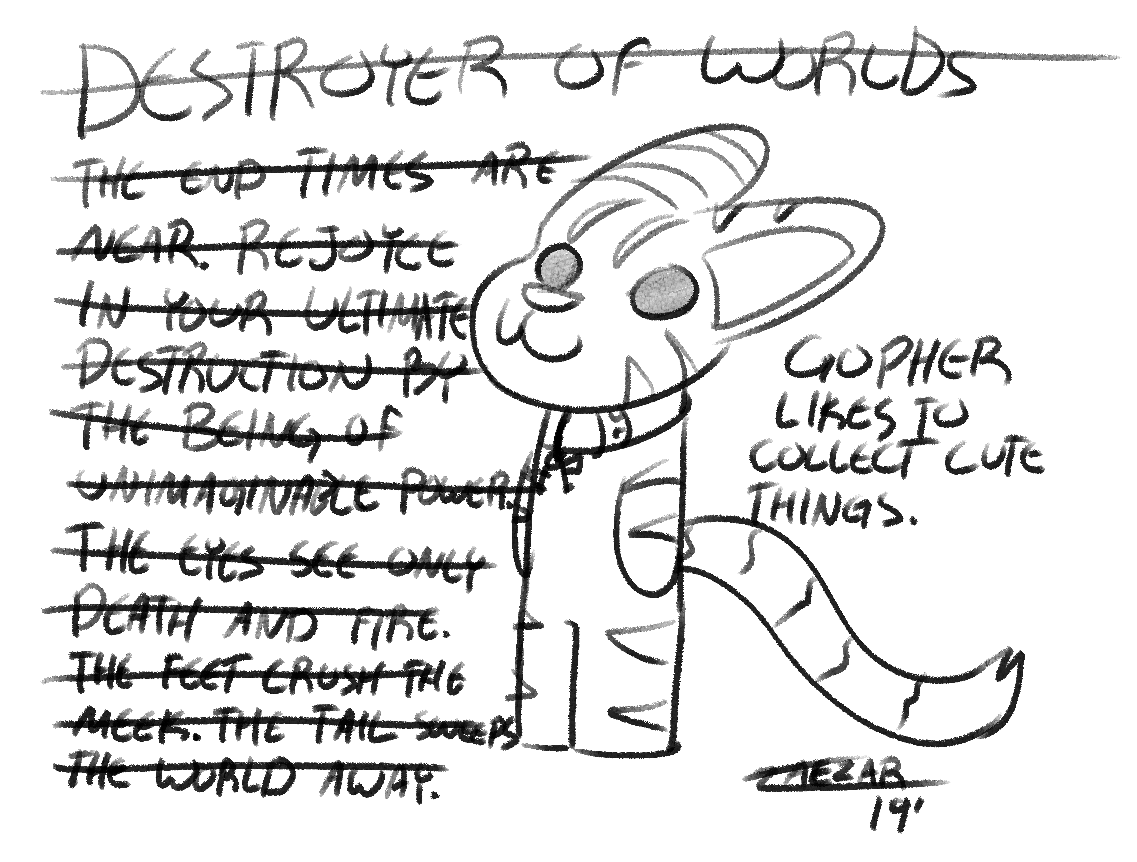 DESTROYER OF WORLDS
THE END TIMES ARE
NEAR. REJOYCE
IN YOUR ULTIMATE
DESTRUCTION BY
THE BEING OF
UNIMAGINABLE POWER.
THE EYES SEE ONLY
DEATH AND FIRE.
THE FEET CRUSH THE
MEEK. THE TAIL SWEEPS
THE WORLD AWAY.
GOPHER
LIKES TO
COLLECT CUTE
THINGS.
CAEZAR
19'